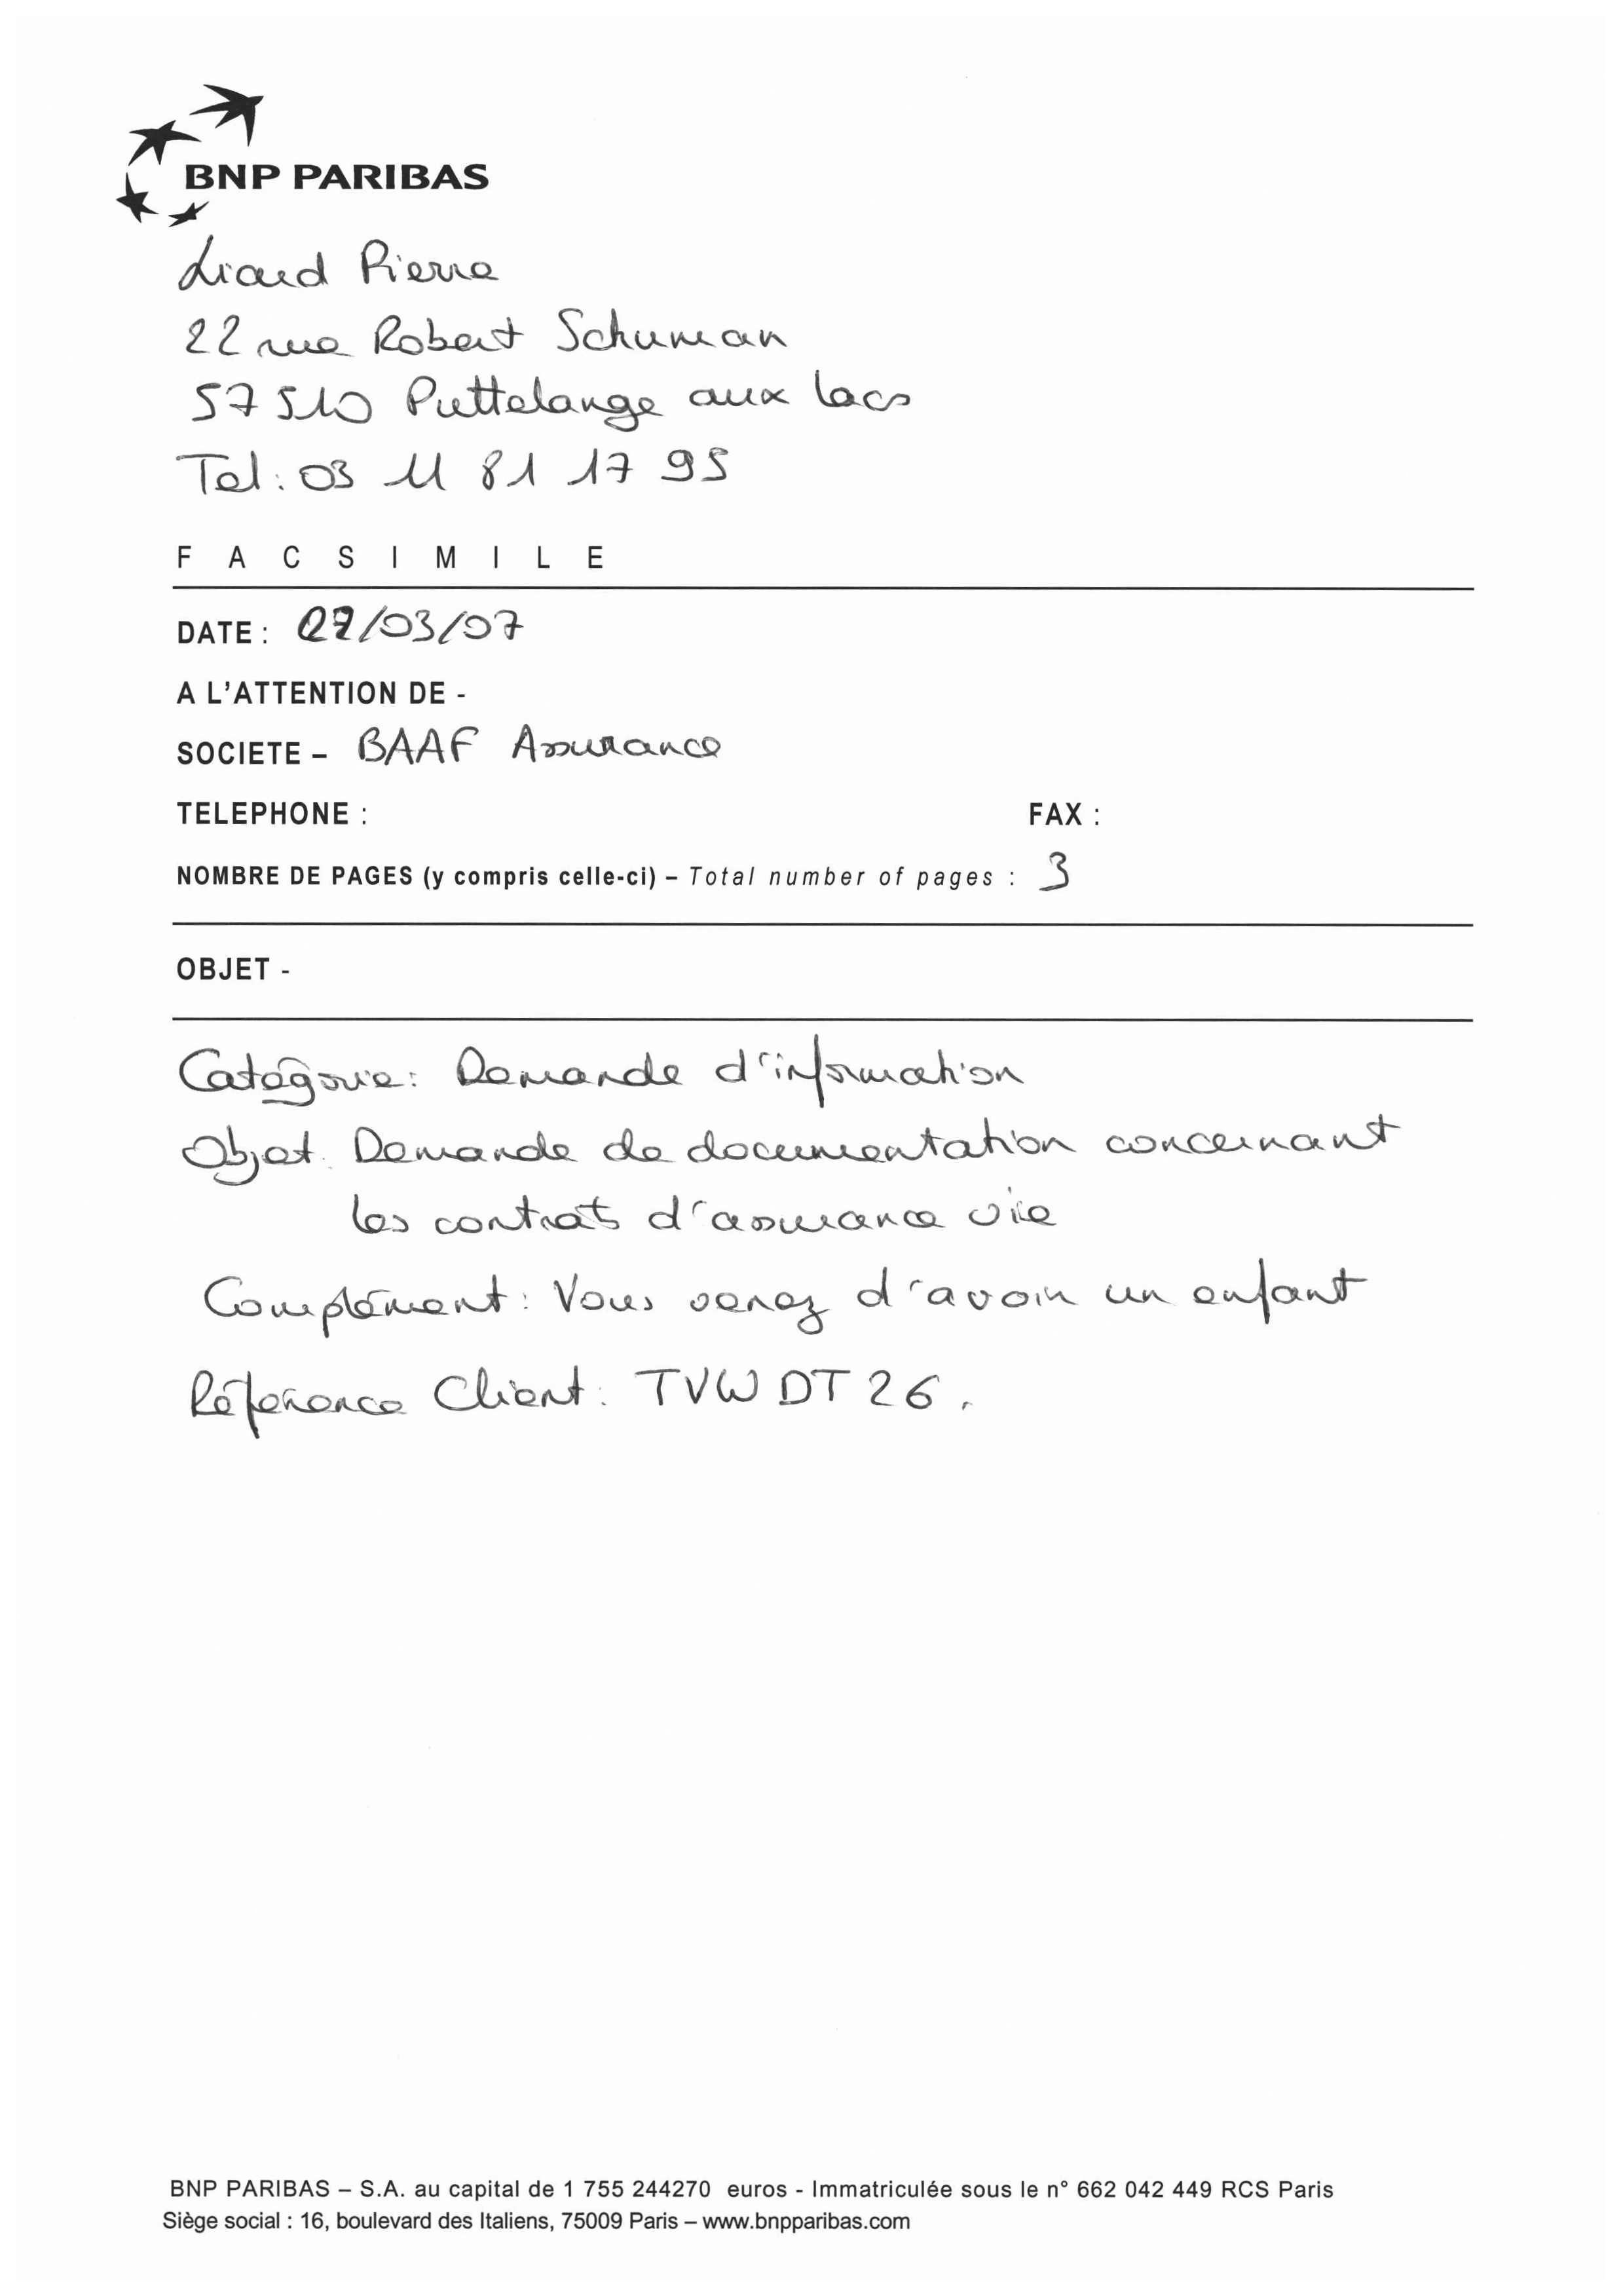 BNP PARIBAS
Liaud Pierre
22 rue Robert Schuman
57510 Puttelange aux lacs
Tel: 03 11 81 17 95
FACSIMILE
DATE : 07/03/07
A L'ATTENTION DE -
SOCIETE – BAAF Assurance
TELEPHONE : FAX :
NOMBRE DE PAGES (y compris celle-ci) – Total number of pages : 3
OBJET -
Catégorie: Demande d'information
Objet: Demande de documentation concernant
les contrats d'assurance vie
Complément: Vous venez d'avoir un enfant
Référence Client: TVWDT26.
BNP PARIBAS – S.A. au capital de 1 755 244270 euros - Immatriculée sous le n° 662 042 449 RCS Paris
Siège social : 16, boulevard des Italiens, 75009 Paris – www.bnpparibas.com